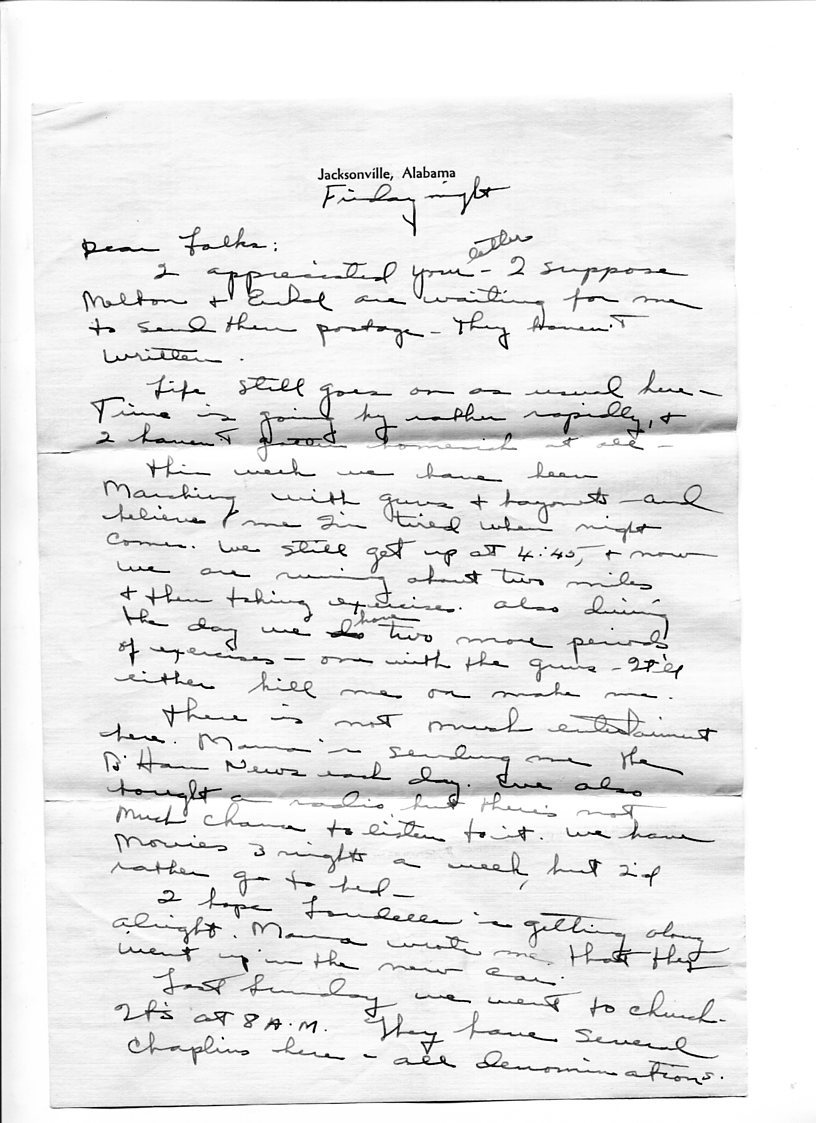 Jacksonville, Alabama
Friday night
Dear Folks:
I appreciated your letters - I suppose
Melton + are waiting for me
to send them postage - They haven't
written.
Life still goes on as usual here -
Time is going by rather rapidly, +
I haven't grown homesick at all -
This week we have been
Marching with guns + bayonets - and
believe me I'm tired when night
comes. We still get up at 4:45, + now
we are running about two miles
+ then taking exercises. Also during
the day we have two more periods
of exercises - one with the guns - It'll
either kill me or make me.
There is not much entertainment
here. Mama is sending me the
B'Ham News each day. I've also
bought a radio but there's not
much chance to listen to it. We have
Movies 3 nights a week, but I'd
rather go to bed -
I hope is getting along
alright. Mama wrote me that they
went up in the new car.
Last Sunday we went to church -
It's at 8 A.M. They have several
Chaplins here - all denominations.